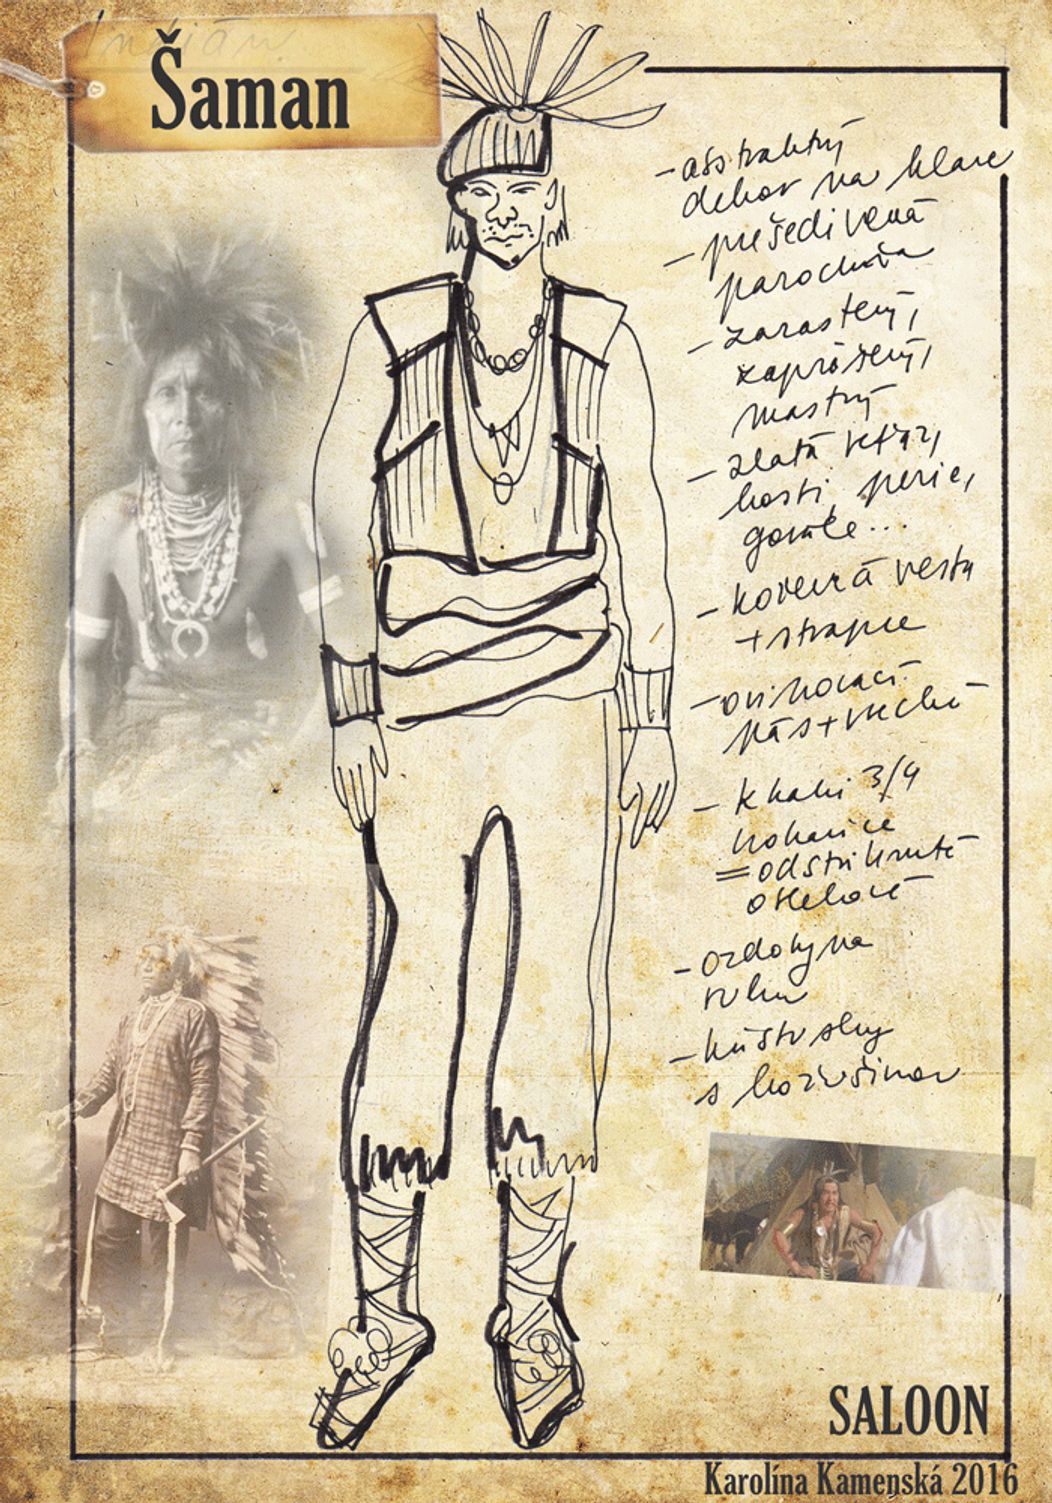 Indián
Šaman
- abstraktný
dekor na hlave
- prešedivená
parochňa
- zarastený,
zaprášený,
mastný
- zlatá reťaz,
kosti, perie,
gorále...
- kožená vesta
+ strapce
- ovinovací
pás +
- khaki 3/4
nohavice
= odstrihnuté
otlčkové
- ozdoby na
ruku
-
s kožušinou
SALOON
Karolína Kamenská 2016